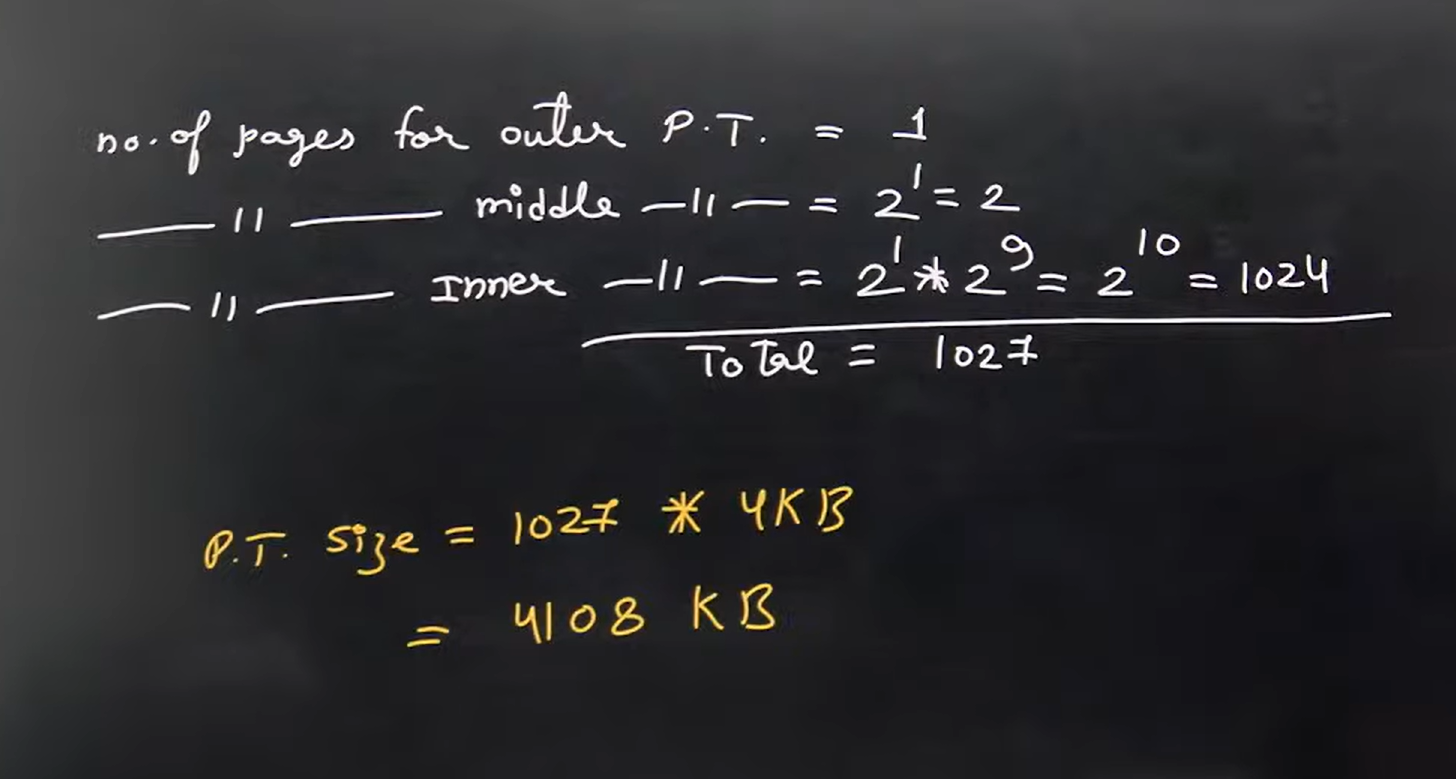 no. of pages for outer P.T. = 1
—— 11 —— middle —11— = 2¹ = 2
—— 11 —— Inner —11— = 2¹ * 2⁹ = 2¹⁰ = 1024
Total = 1027
P.T. size = 1027 * 4KB
= 4108 KB